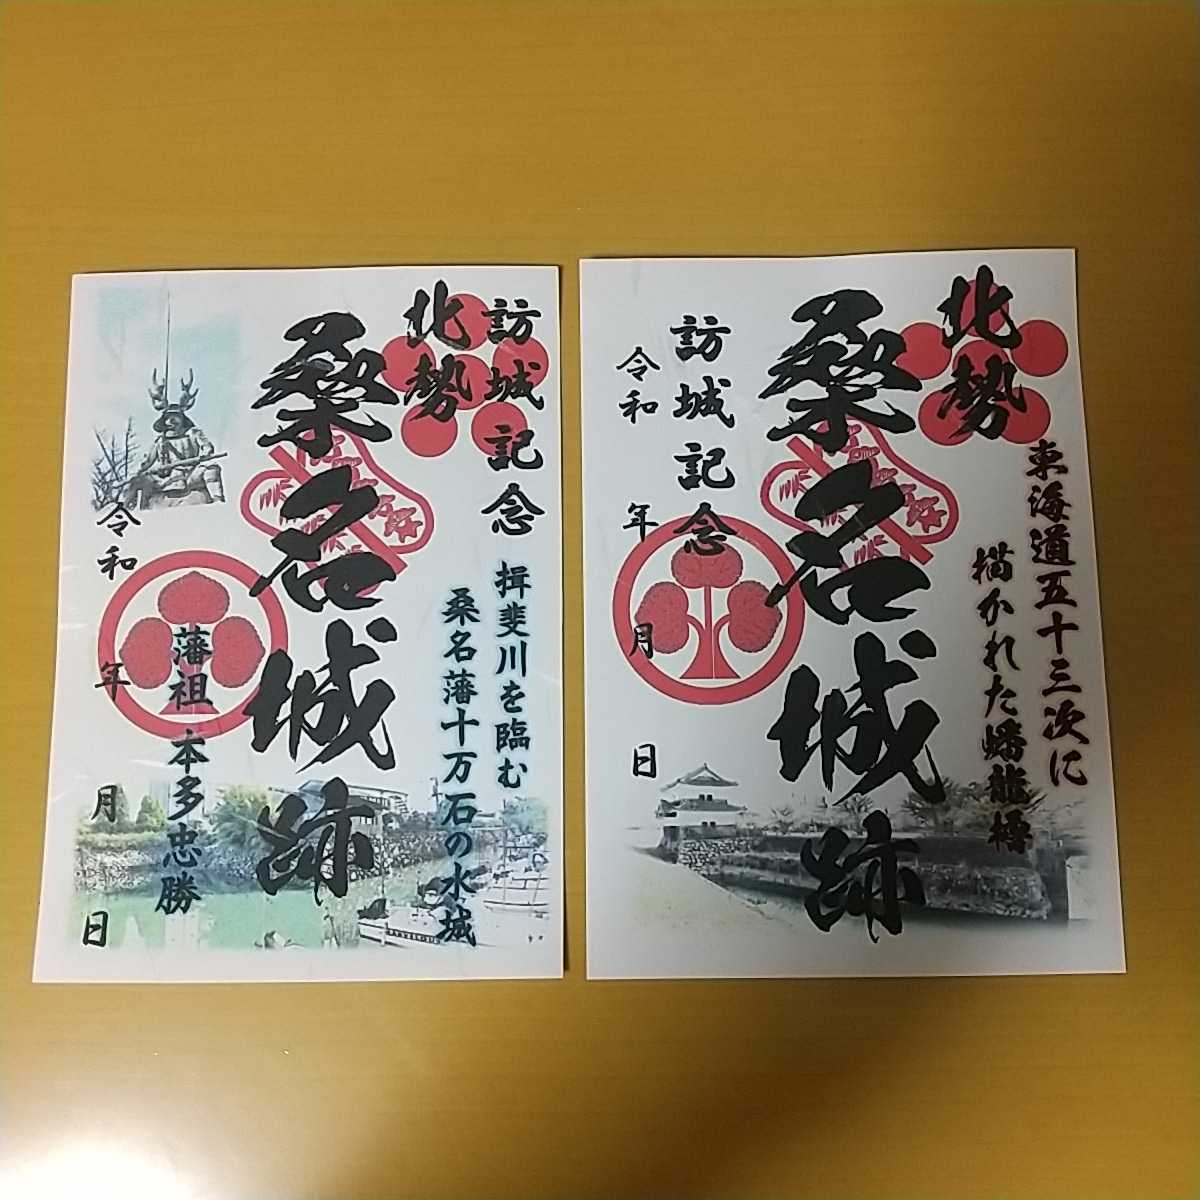 訪城記念
北勢
桑名城跡
揖斐川を臨む
桑名藩十万石の水城
藩祖 本多忠勝
令和 年 月 日
北勢
東海道五十三次に
描かれた蟠龍櫓
桑名城跡
訪城記念
令和 年 月 日